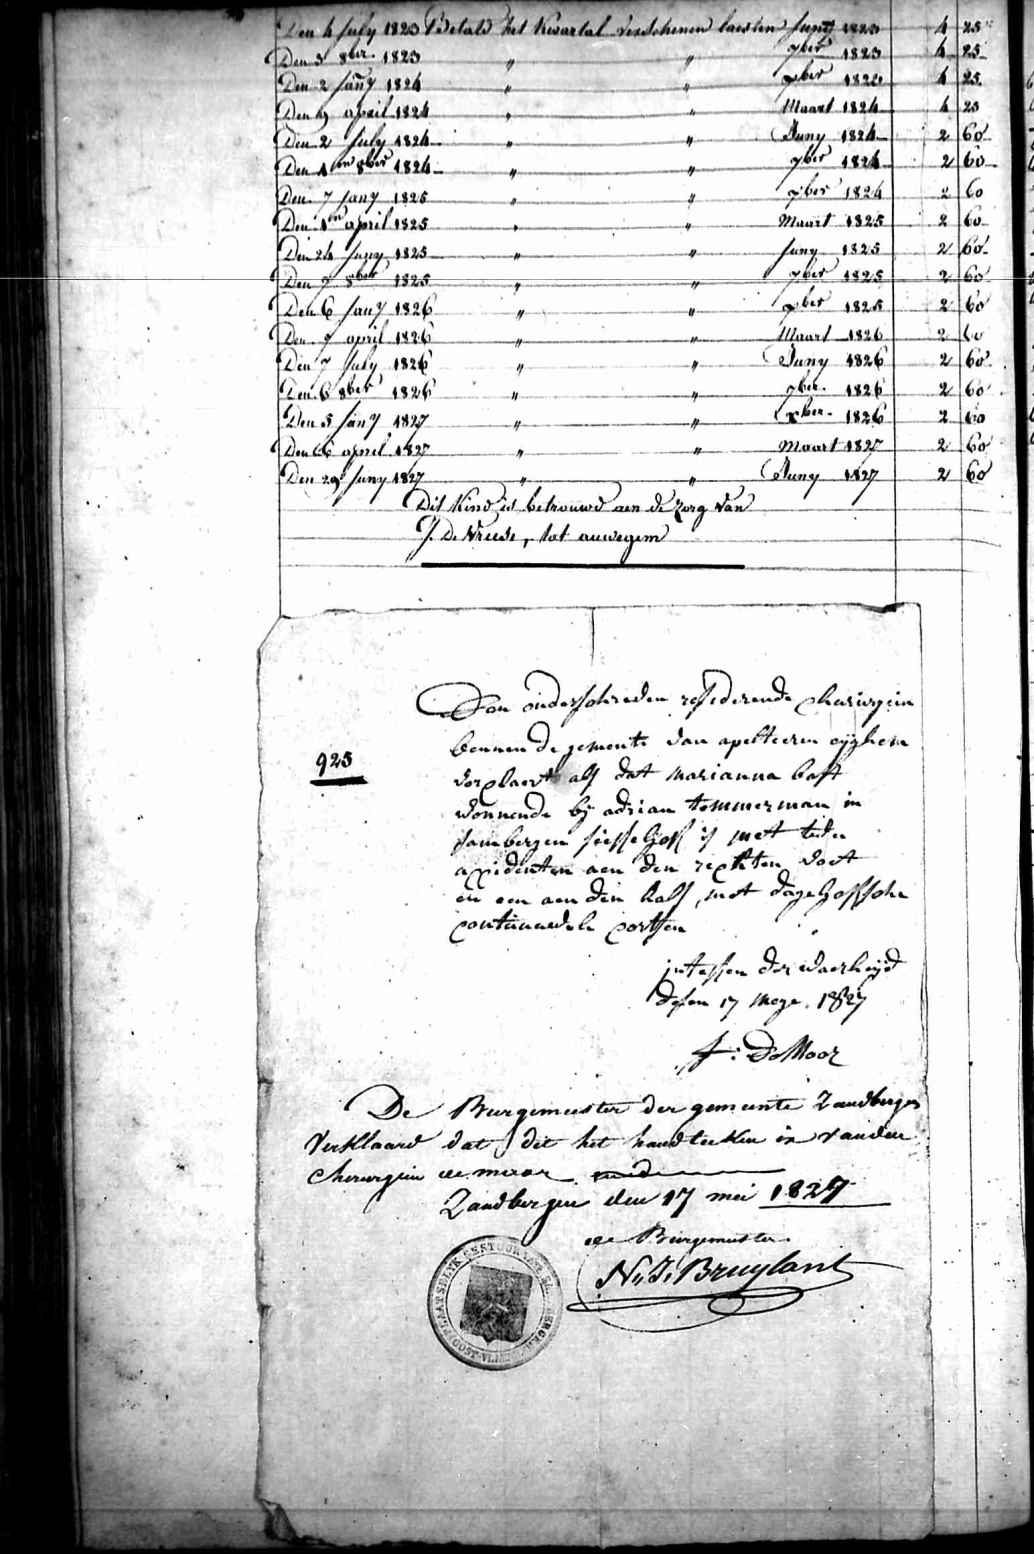 Den 4 July 1823 Betald het Kwartal verschenen laesten Juny 1823 4 25
Den 3 8ber 1823 " " 7ber 1823 4 25
Den 2 Jany 1824 " " xber 1823 4 25
Den 9 april 1824 " " Maart 1824 4 25
Den 2 July 1824 " " Juny 1824 2 60
Den 1en 8ber 1824 " " 7ber 1824 2 60
Den 7 Jany 1825 " " xber 1824 2 60
Den 1en april 1825 " " Maart 1825 2 60
Den 24 Juny 1825 " " Juny 1825 2 60
Den 7 8ber 1825 " " 7ber 1825 2 60
Den 6 Jany 1826 " " xber 1825 2 60
Den 7 april 1826 " " Maart 1826 2 60
Den 7 July 1826 " " Juny 1826 2 60
Den 6 8ber 1826 " " 7ber 1826 2 60
Den 5 Jany 1827 " " xber 1826 2 60
Den 6 april 1827 " " Maart 1827 2 60
Den 29 Juny 1827 " " Juny 1827 2 60
Dit Kind is betrouwd aen de zorg van
J. De Vreese, tot auwegem
923
Den onderschreden resederende chirurgin
bennen de gemente van apelteeren eyghem
verclaert als dat marianna bast
wonnende by adrian temmerman in
sambergen is met
accidenten aen den rechten voet
en een aen den hals, met dagelyssche
continuwele cortsen
intessen der waerheyd
desen 17 meye 1827
F: De Moor
De Burgemeester der gemeente Zandbergen
verklaard dat dit het handteeken is vanden
cherurgin de moor
Zandbergen den 17 mei 1827
de Burgemeester
N: J: Bruylant
PLAATSELYK BESTUUR
OOST-VL